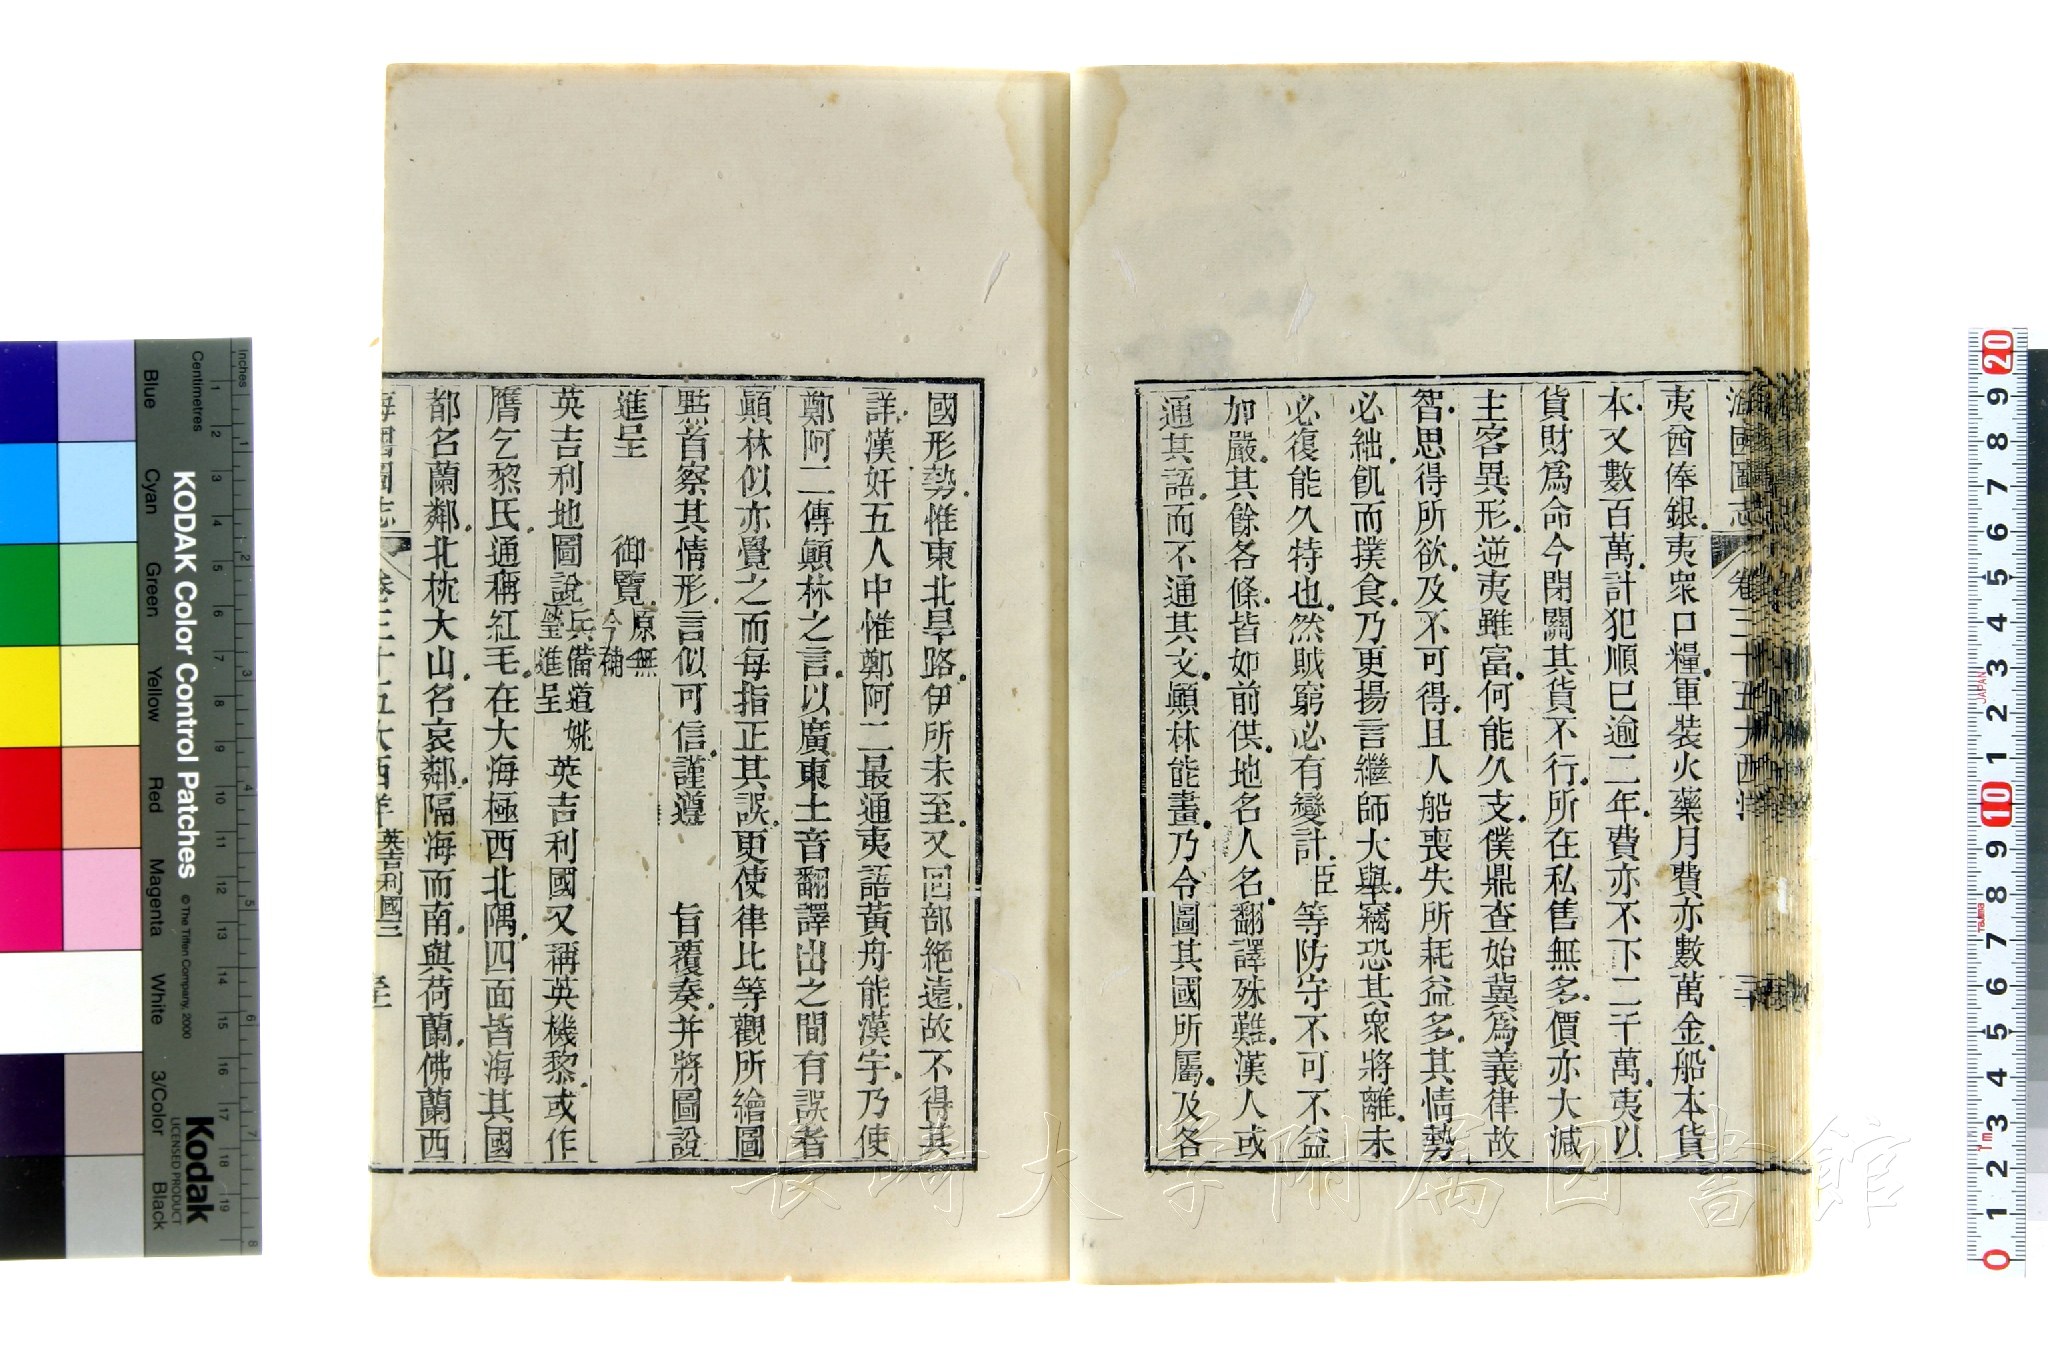 海國圖志 卷三十五大西洋
夷酋俸銀夷衆口糧軍裝火藥月費亦數萬金船本貨
本又數百萬計犯順已逾二年費亦不下二千萬夷以
貨財爲命今閉關其貨不行所在私售無多價亦大減
主客異形逆夷雖富何能久支僕鼎查始冀爲義律故
智思得所欲及不可得且人船喪失所耗益多其情勢
必絀飢而撲食乃更揚言繼師大舉竊恐其衆將離未
必復能久特也然賊窮必有變計臣等防守不可不益
加嚴其餘各條皆如前供地名人名翻譯殊難漢人或
通其語而不通其文顚林能畫乃令圖其國所屬及各
國形勢惟東北旱路伊所未至又囘部絶遠故不得其
詳漢奸五人中惟鄭阿二最通夷語黃舟能漢字乃使
鄭阿二傳顚林之言以廣東土音翻譯出之間有誤者
顚林似亦覺之而每指正其誤更使律比等觀所繪圖
㸃首察其情形言似可信謹遵 旨覆奏并將圖說
進呈 御覽原無今補
英吉利地圖說兵備道姚瑩進呈 英吉利國又稱英機黎或作
膺乞黎氏通稱紅毛在大海極西北隅四面皆海其國
都名蘭鄰北枕大山名哀鄰隔海而南與荷蘭佛蘭西
海國圖志 卷三十五大西洋英吉利國三
KODAK Color Control Patches © The Tiffen Company, 2000
Kodak
LICENSED PRODUCT
Blue Cyan Green Yellow Red Magenta White 3/Color Black
Inches 1 2 3 4 5 6 7 8
Centimetres 1 2 3 4 5 6 7 8 9 10 11 12 13 14 15 16 17 18 19
20 9 8 7 6 5 4 3 2 1 10 9 8 7 6 5 4 3 2 1 0
JAPAN
1m
長崎大学附属図書館